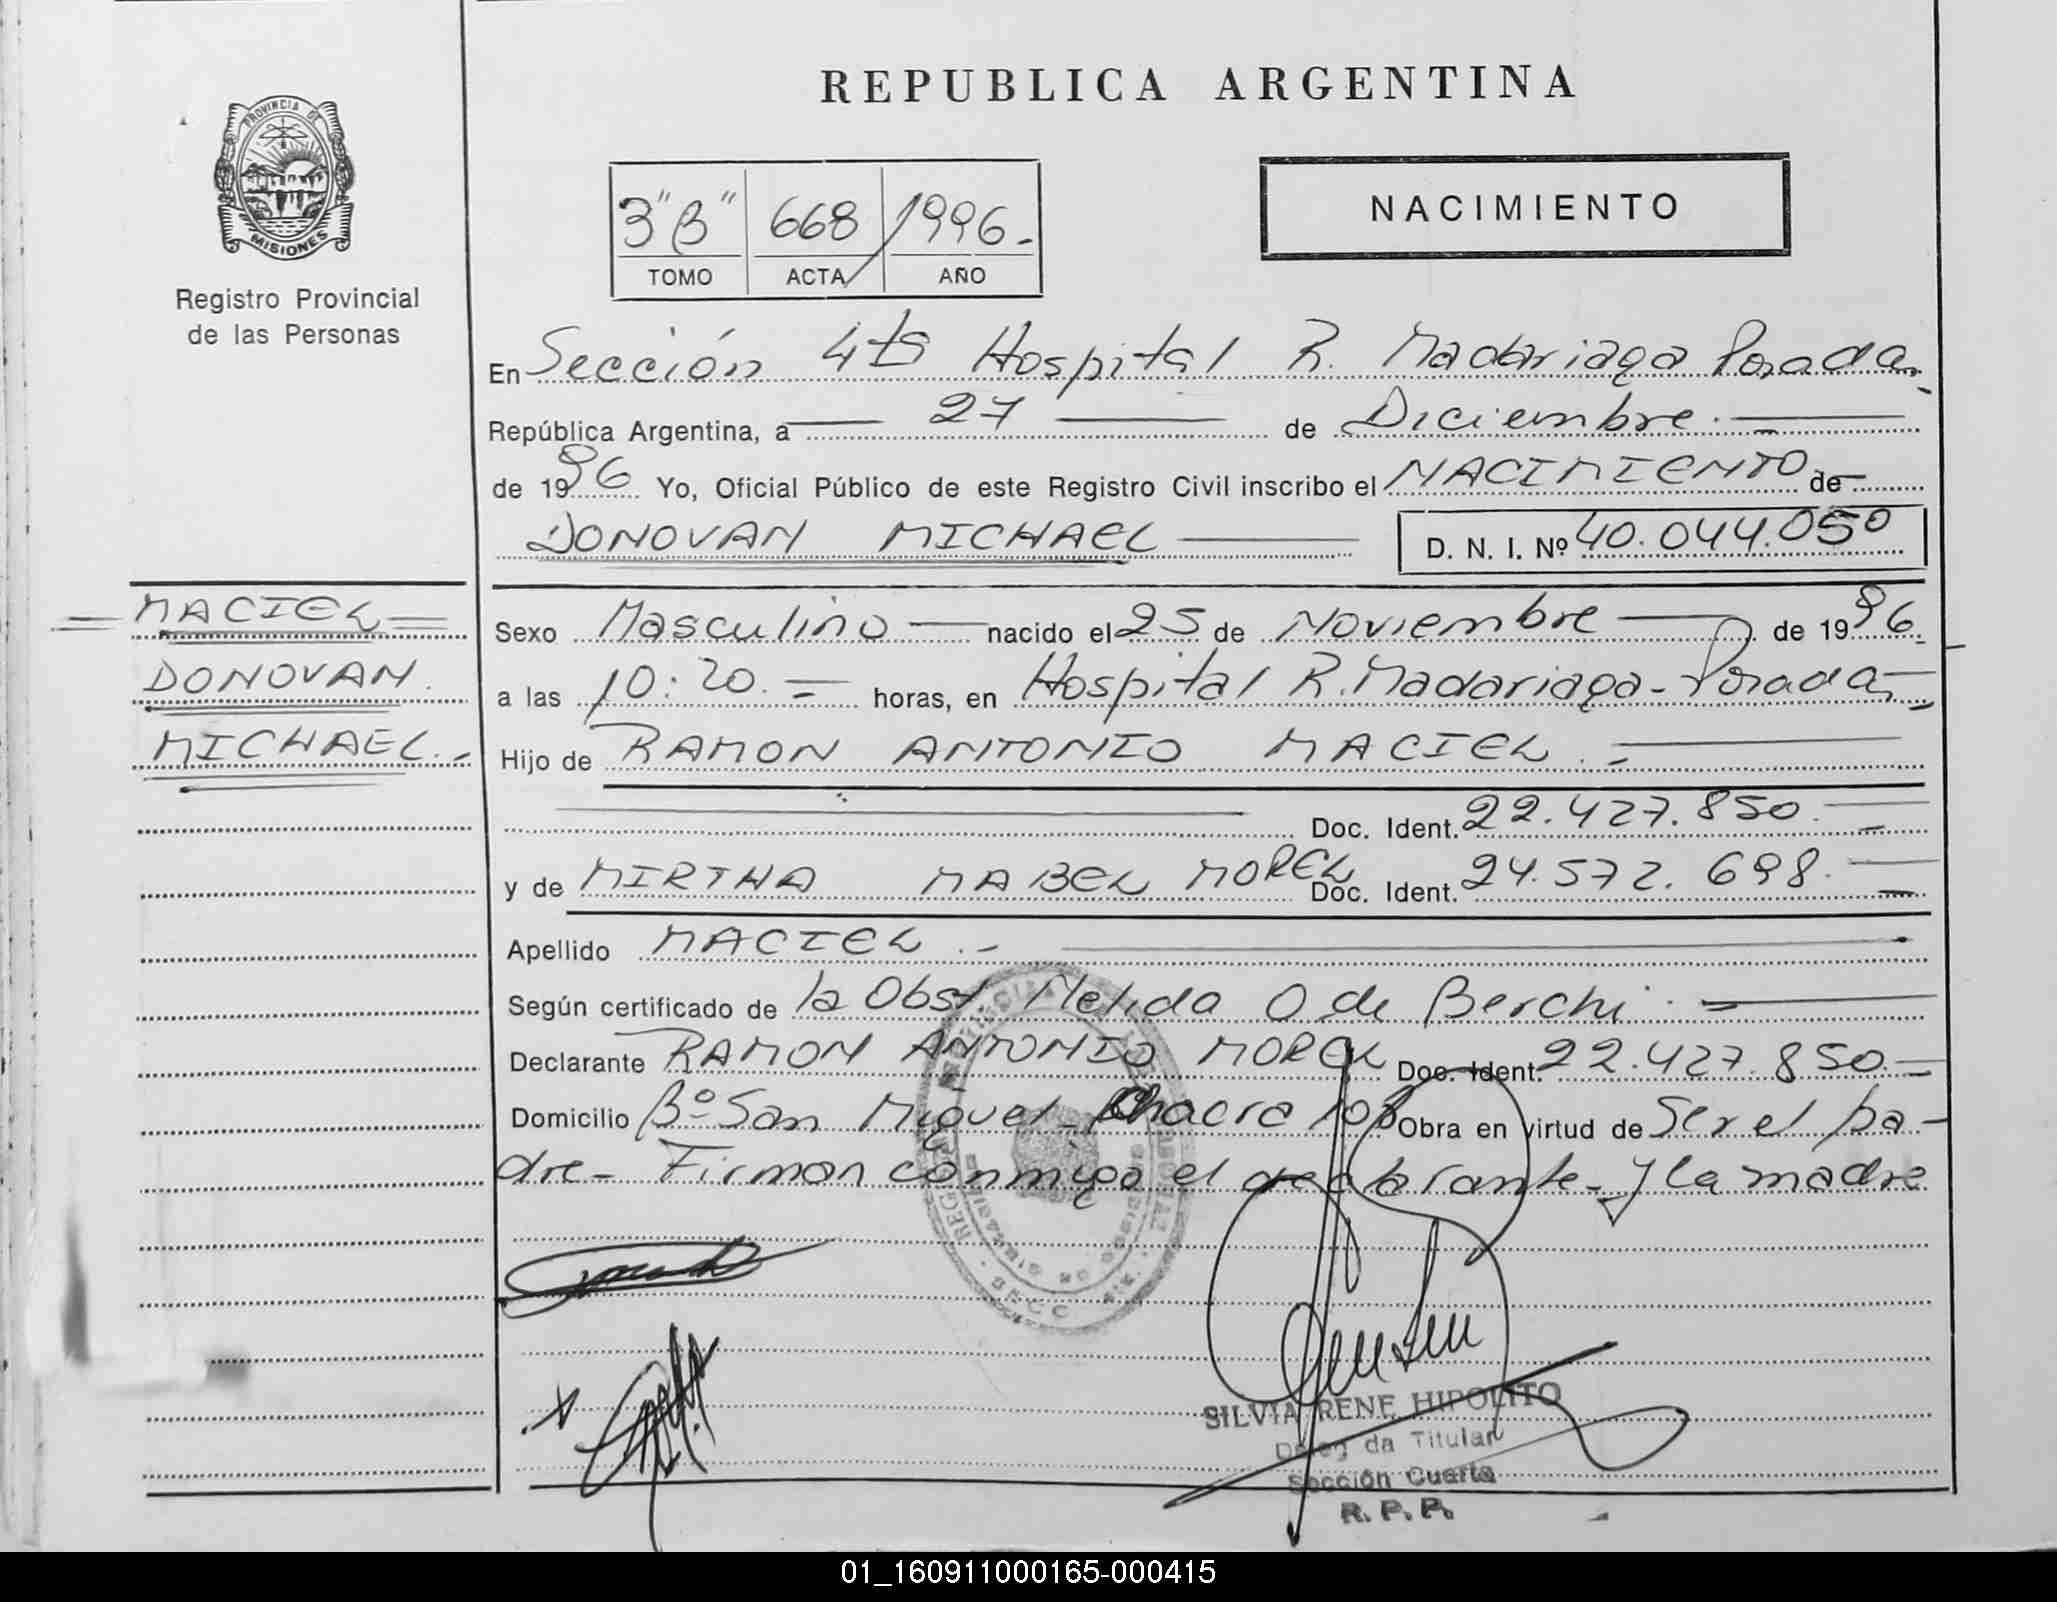 REPUBLICA ARGENTINA
PROVINCIA DE
MISIONES
Registro Provincial
de las Personas
NACIMIENTO
3"B" 668 1996.-
TOMO ACTA AÑO
En Sección 4ta Hospital R. Madariaga Posadas
República Argentina, a 27 de Diciembre.-
de 1996 Yo, Oficial Público de este Registro Civil inscribo el NACIMIENTO de
DONOVAN MICHAEL D. N. I. Nº 40.044.050
MACIEL
DONOVAN
MICHAEL.-
Sexo Masculino nacido el 25 de Noviembre de 1996.
a las 10:20.= horas, en Hospital R. Madariaga - Posadas
Hijo de RAMON ANTONIO MACIEL.-
Doc. Ident. 22.427.850.-
y de MIRTHA MABEL MOREL Doc. Ident. 24.572.698.-
Apellido MACIEL.-
Según certificado de la Obst. Melida O de Berchi.-
Declarante RAMON ANTONIO MOREL Doc. Ident. 22.427.850.-
Domicilio Bº San Miguel - Chacra 108 Obra en virtud de Ser el pa-
dre- Firman conmigo el declarante- y la madre
SILVIA IRENE HIPOLITO
Deleg da Titular
Sección Cuarta
R. P. P.
01_160911000165-000415